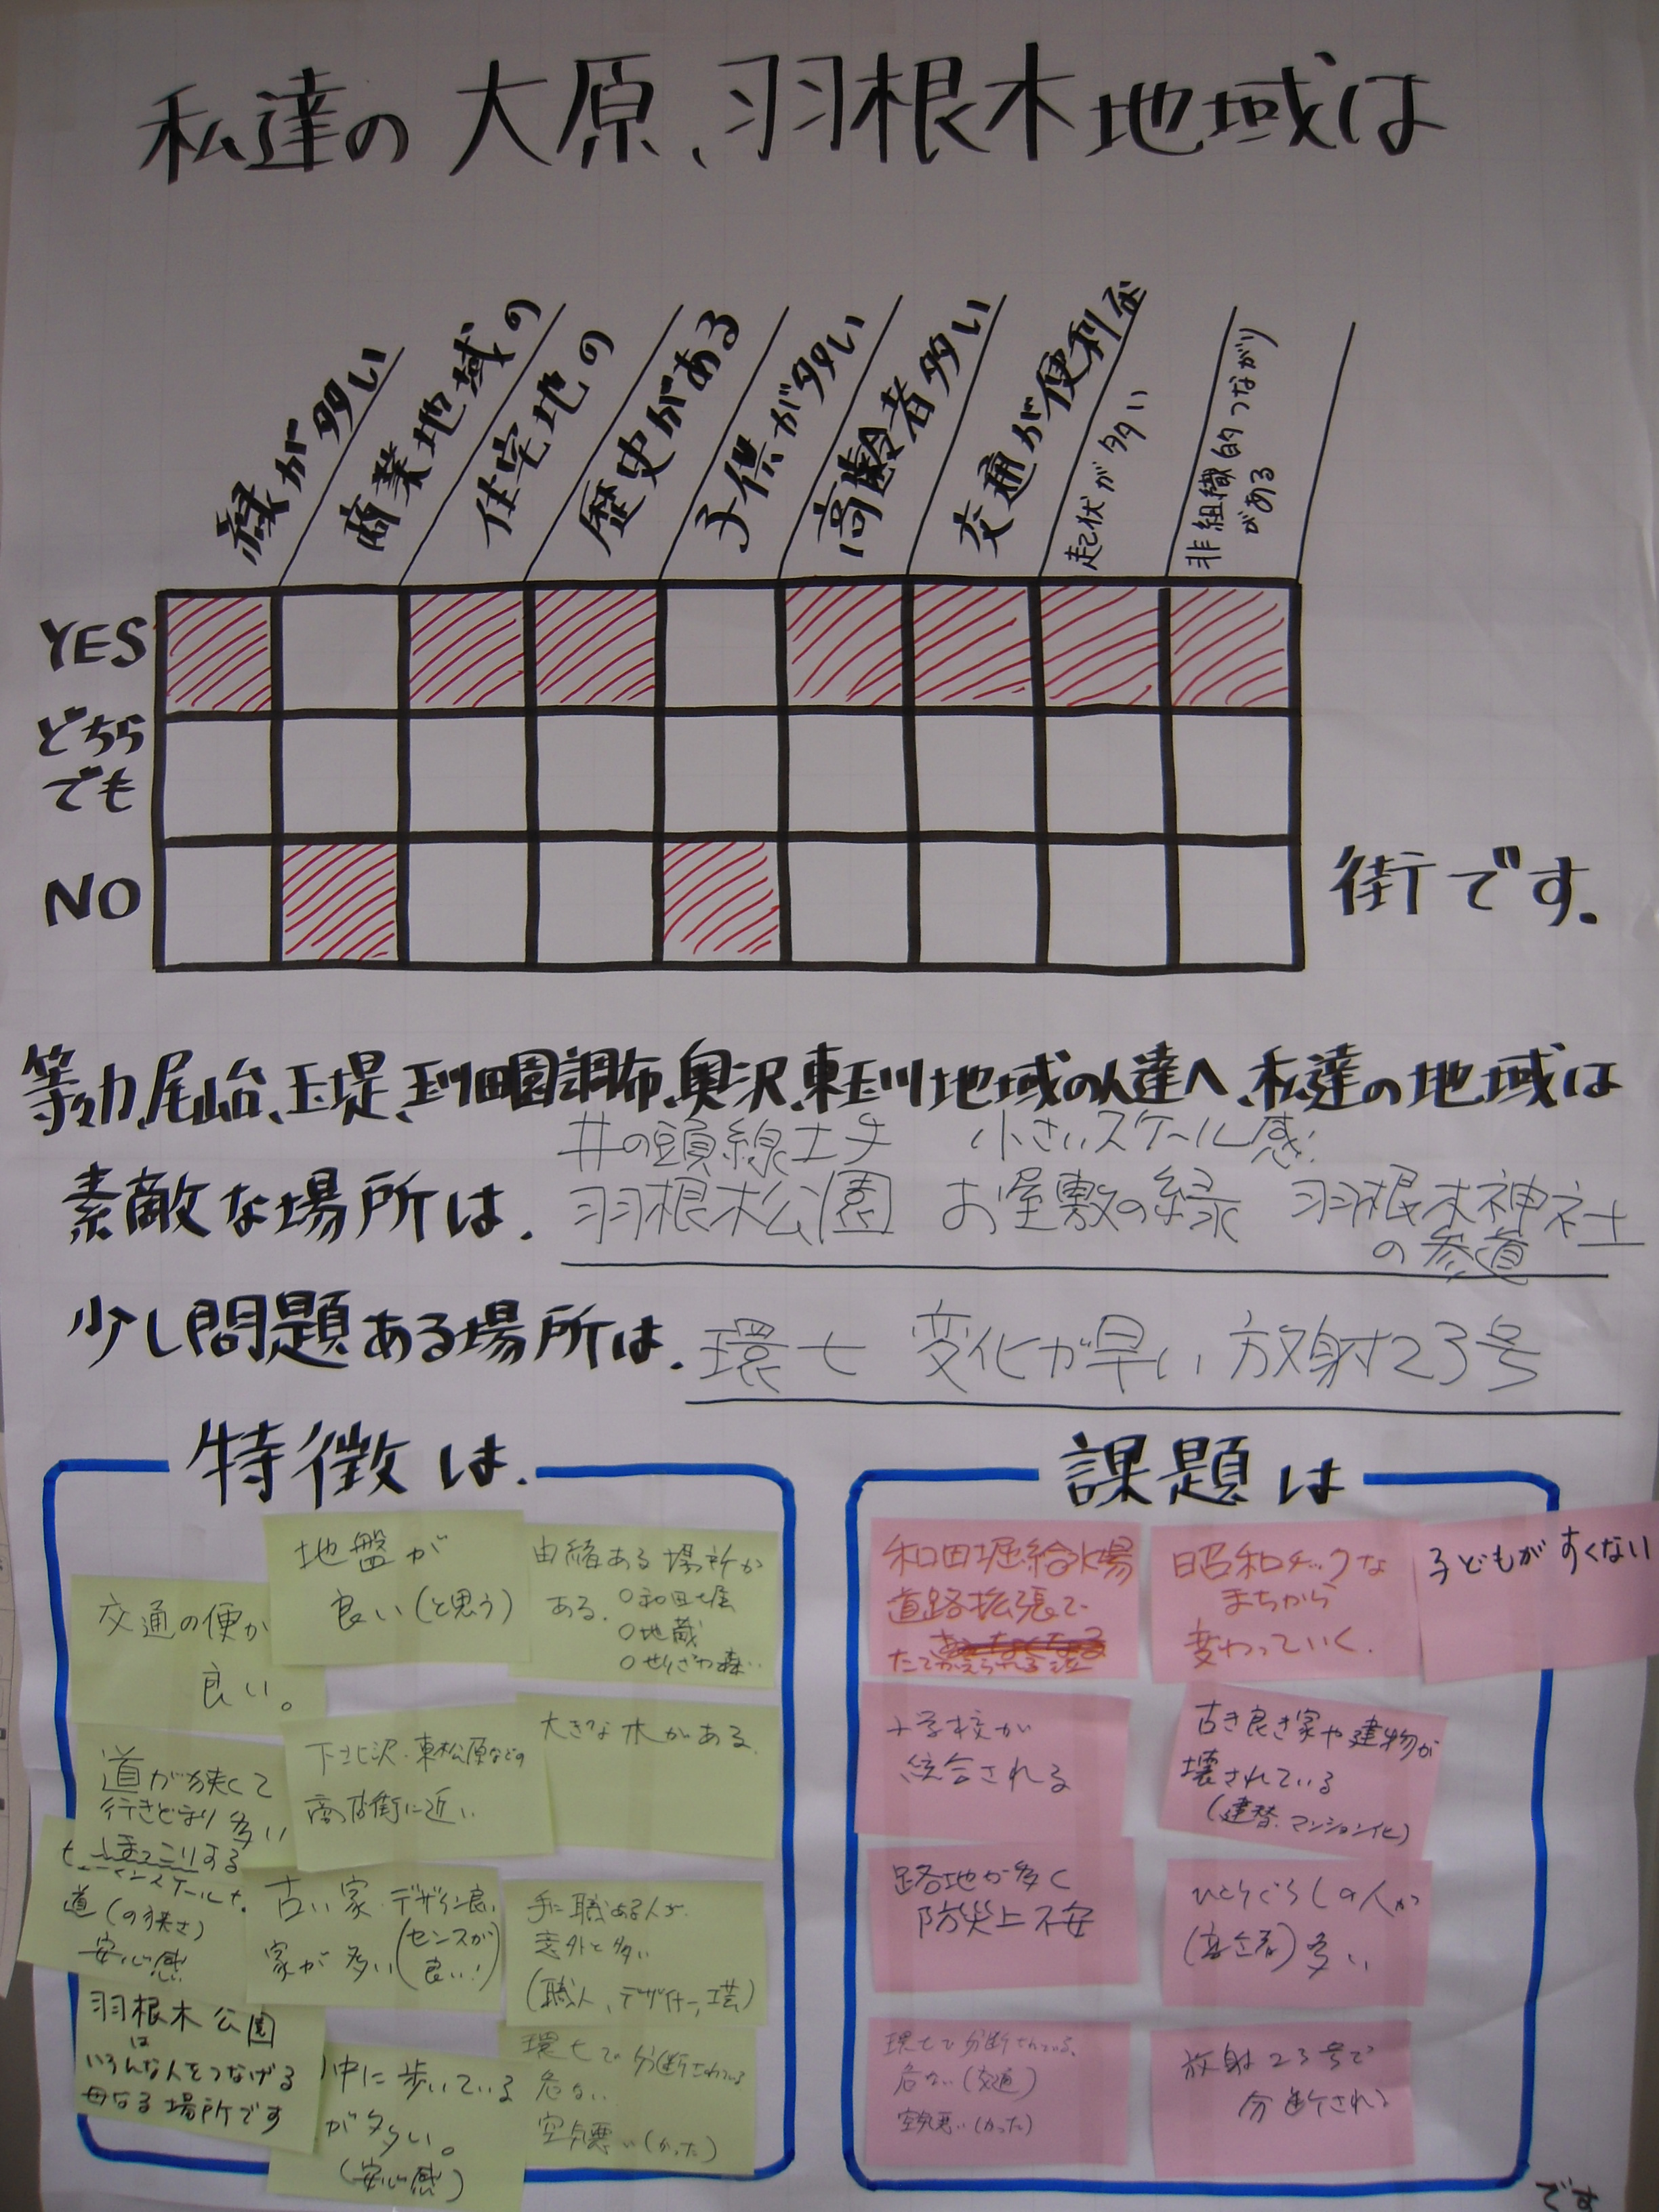 私達の大原、羽根木地域は
緑が多い
商業地域の
住宅地の
歴史がある
子供が多い
高齢者多い
交通が便利な
起伏が多い
非組織的つながり
がある
YES
どちら
でも
NO
街です.
等々力、尾山台、玉堤、玉川田園調布、奥沢、東玉川地域の人達へ、私達の地域は
井の頭線土手 小さいスケール感
素敵な場所は、羽根木公園 お屋敷の緑 羽根木神社
の参道
少し問題ある場所は、環七 変化が早い 放射23号
特徴は、
地盤が
良い(と思う)
由緒ある場所が
ある.
○和田堀
○地蔵
交通の便が
良い。
下北沢・東松原などの
商店街に近い
大きな木がある.
道が狭くて
行きどまり多い
道(の狭さ)
安心感
古い家・デザイン良い
家が多い(センスが
良い!)
手に職ある人が
意外と多い
(職人、デザイナー、工芸)
羽根木公園
は
いろんな人をつなげる
母なる場所です
中に歩いている
が多い。
(安心感)
環七で分断されている
危ない
空気悪い(かった)
課題は
和田堀給水場
道路拡張で
たてかえられる
昭和チックな
まちから
変わっていく.
子どもがすくない
小学校が
統合される
古き良き家や建物が
壊されている
(建替.マンション化)
路地が多く
防災上不安
ひとりぐらしの人が
多い
環七で分断されている、
危ない(交通)
空気悪い(かった)
放射23号で
分断される
です